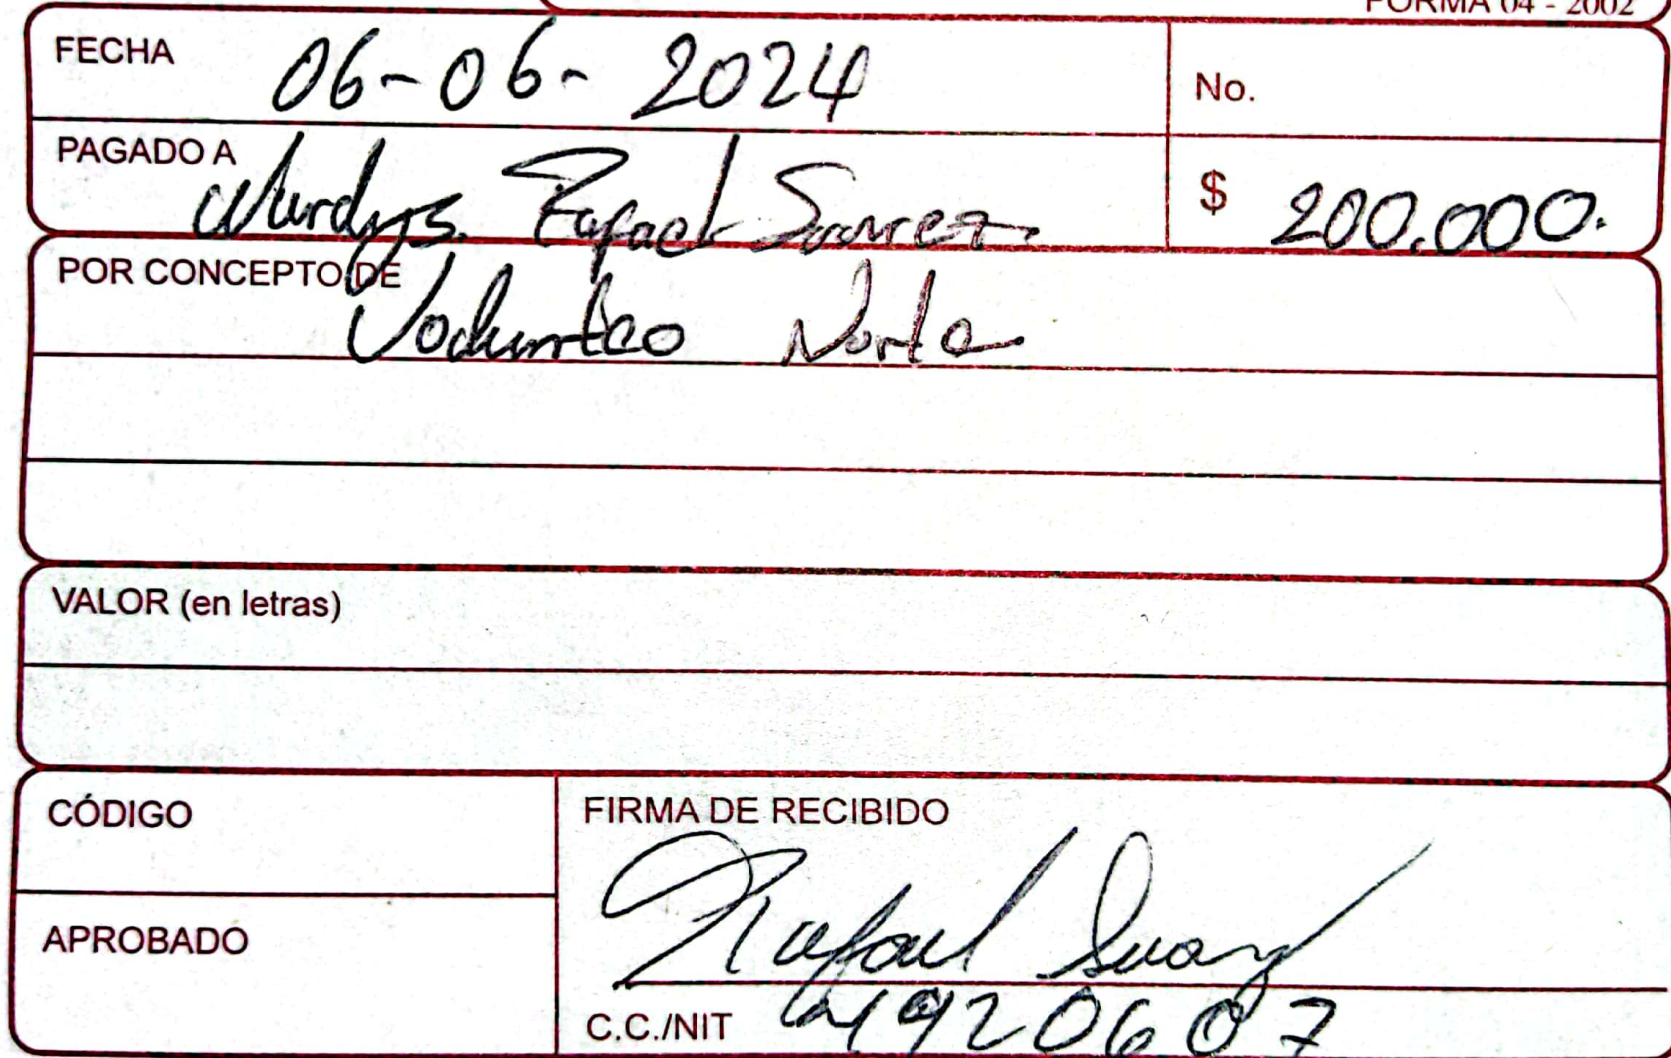 FORMA 04 - 2002
FECHA 06-06-2024 No.
PAGADO A Wurdys. Rafael Suarez. $ 200.000.
POR CONCEPTO DE
Norte
VALOR (en letras)
CÓDIGO
FIRMA DE RECIBIDO
Rafael Suarez
APROBADO
C.C./NIT 4920607